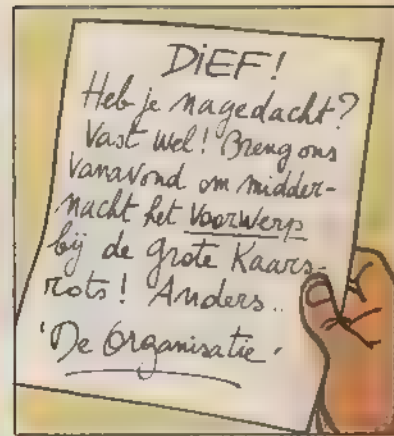 DiEF!
Heb je nagedacht?
Vast wel! Breng ons
vanavond om midder-
nacht het Voorwerp
bij de grote Kaars-
rots! Anders..
'De Organisatie'